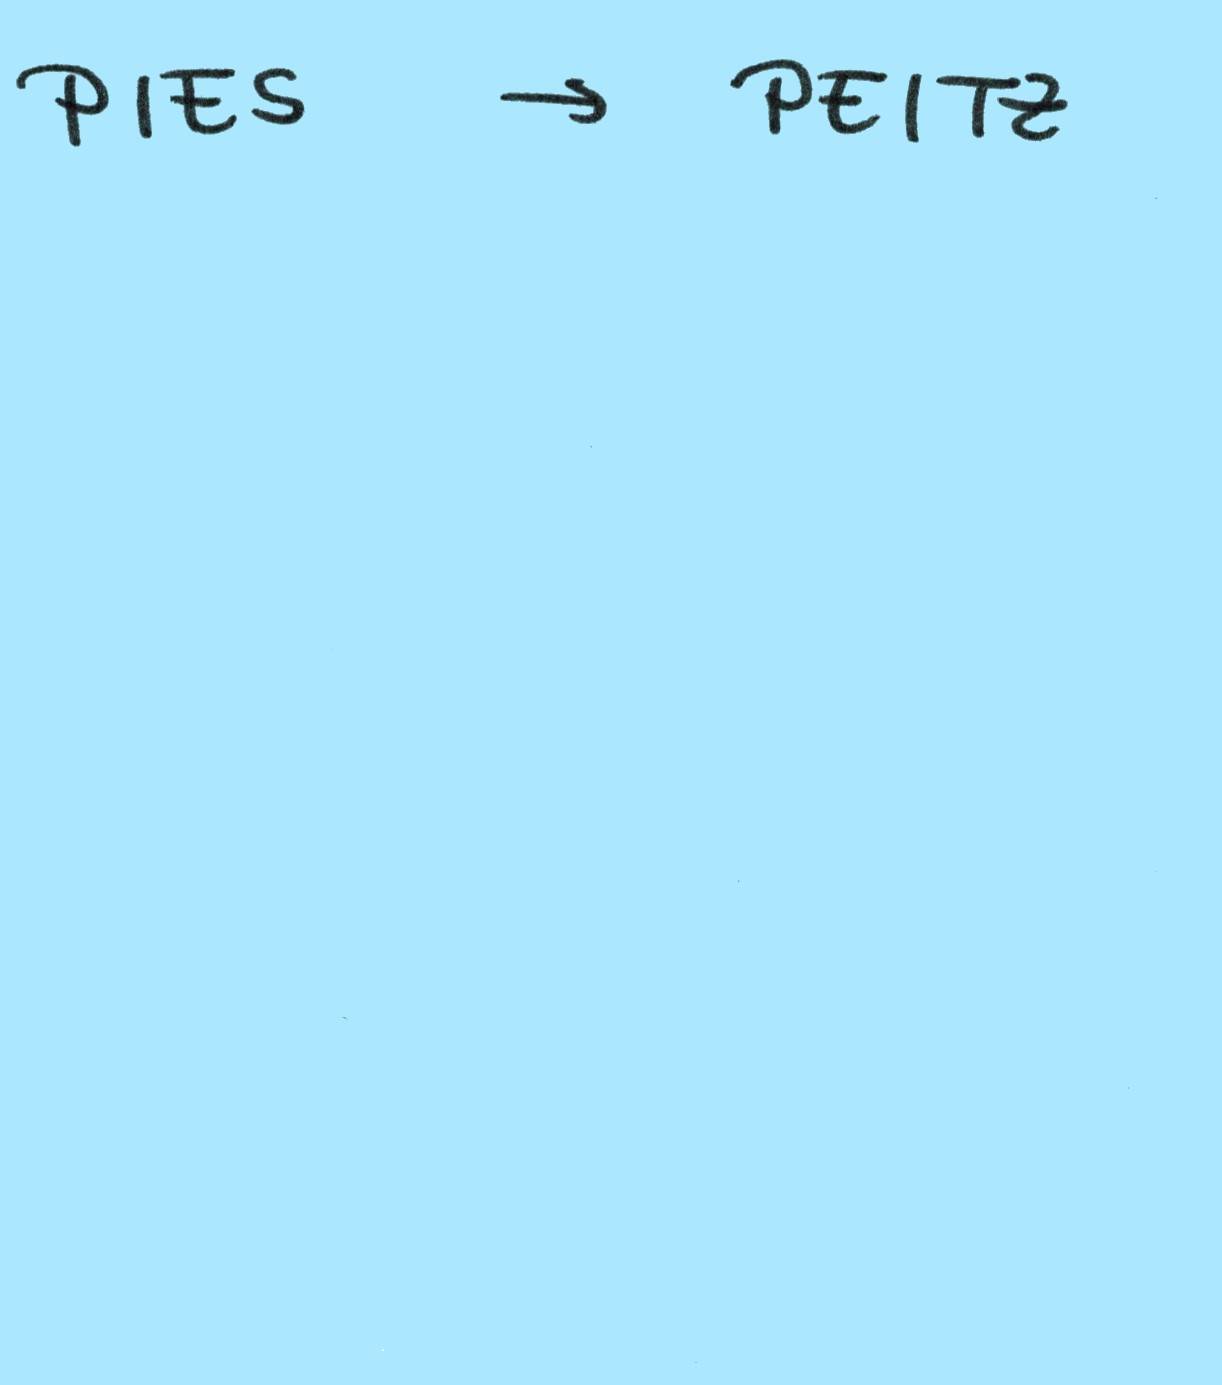 PIES → PEITZ